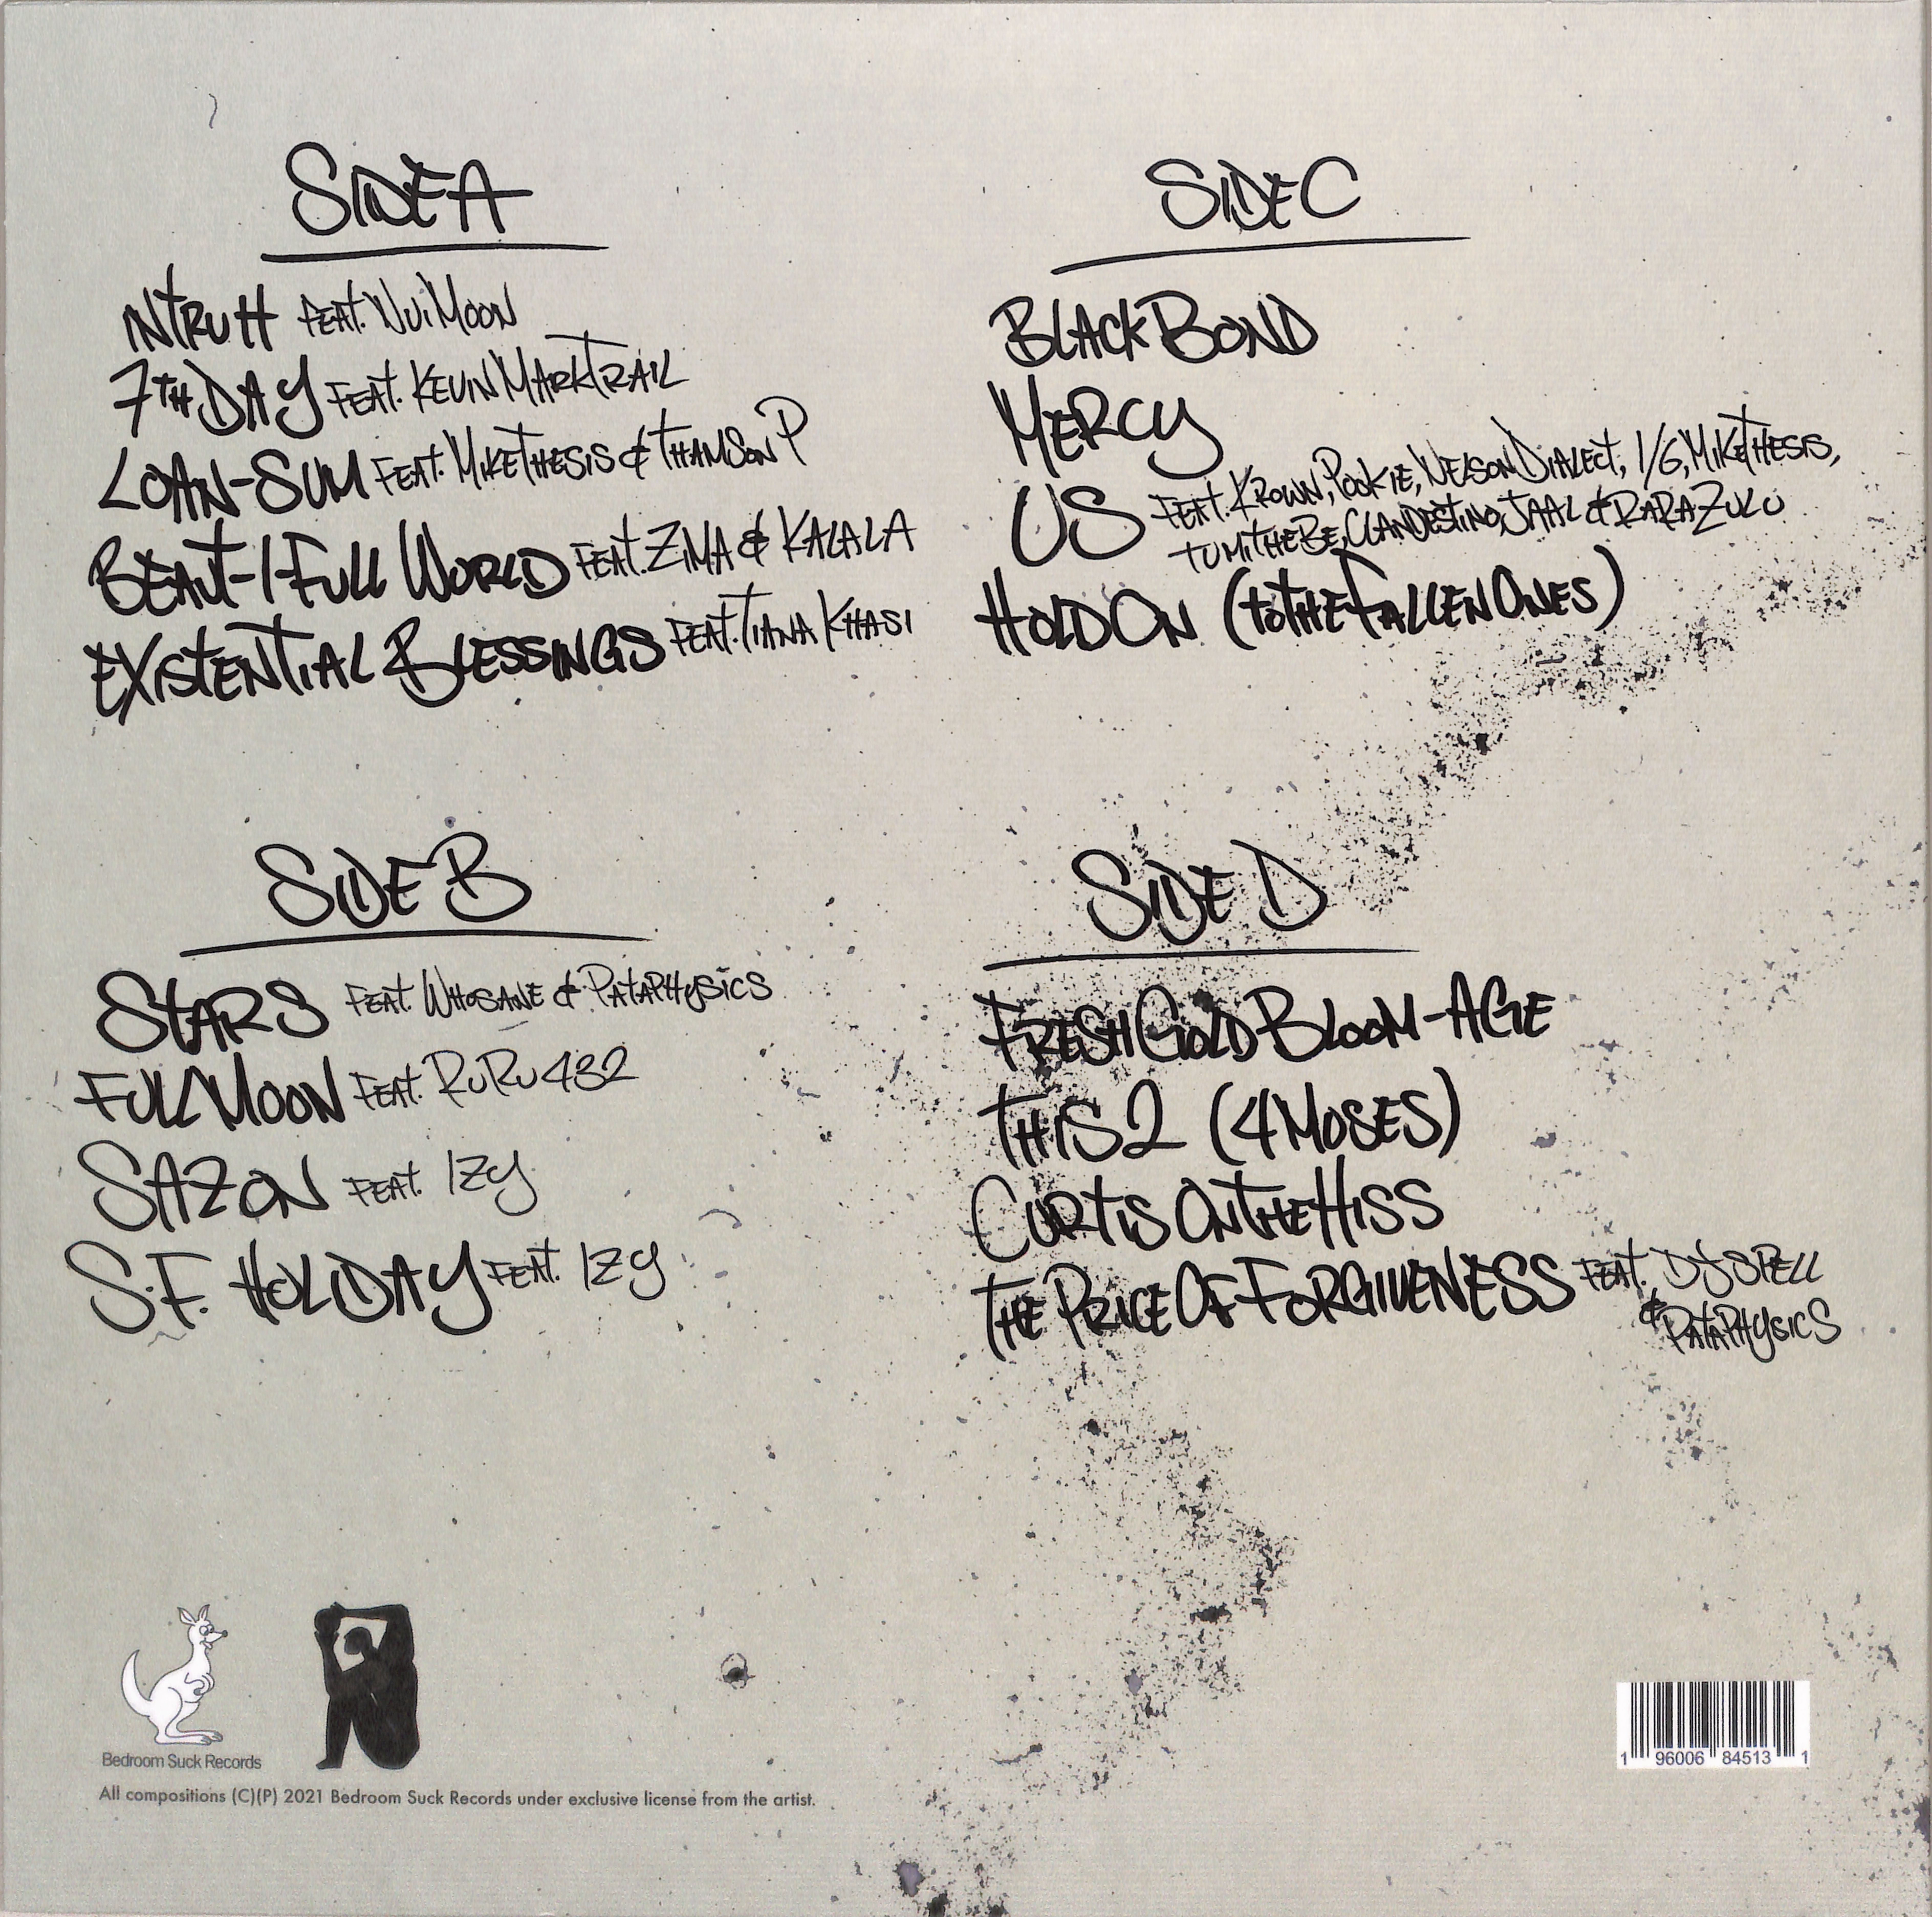 SIDE A
INTRUTH FEAT. NUI MOON
7TH DAY FEAT. KEVIN MARK TRAIL
LOAN-SUM FEAT. MIKE THESIS & THAMSON P
BEAUT-I-FULL WORLD FEAT. ZIMA & KALALA
EXISTENTIAL BLESSINGS FEAT. TIANA KHASI
SIDE B
STARS FEAT. WHOSANE & PATAPHYSICS
FULL MOON FEAT. RURU 432
SAZON FEAT. IZY
S.F. HOLIDAY FEAT. IZY
SIDE C
BLACK BOND
MERCY
US FEAT. KROWN, POOKIE, NELSON DIALECT, 1/6, MIKE THESIS,
TUMI THE BE, CLANDESTINO, JAAL & RARA ZULU
HOLD ON (TO THE FALLEN ONES)
SIDE D
FRESH GOLD BLOOM-AGE
THIS 2 (4 MOSES)
CURTIS ON THE HISS
THE PRICE OF FORGIVENESS FEAT. DJ SPELL
& PATAPHYSICS
Bedroom Suck Records
All compositions (C)(P) 2021 Bedroom Suck Records under exclusive license from the artist.
1 96006 84513 1